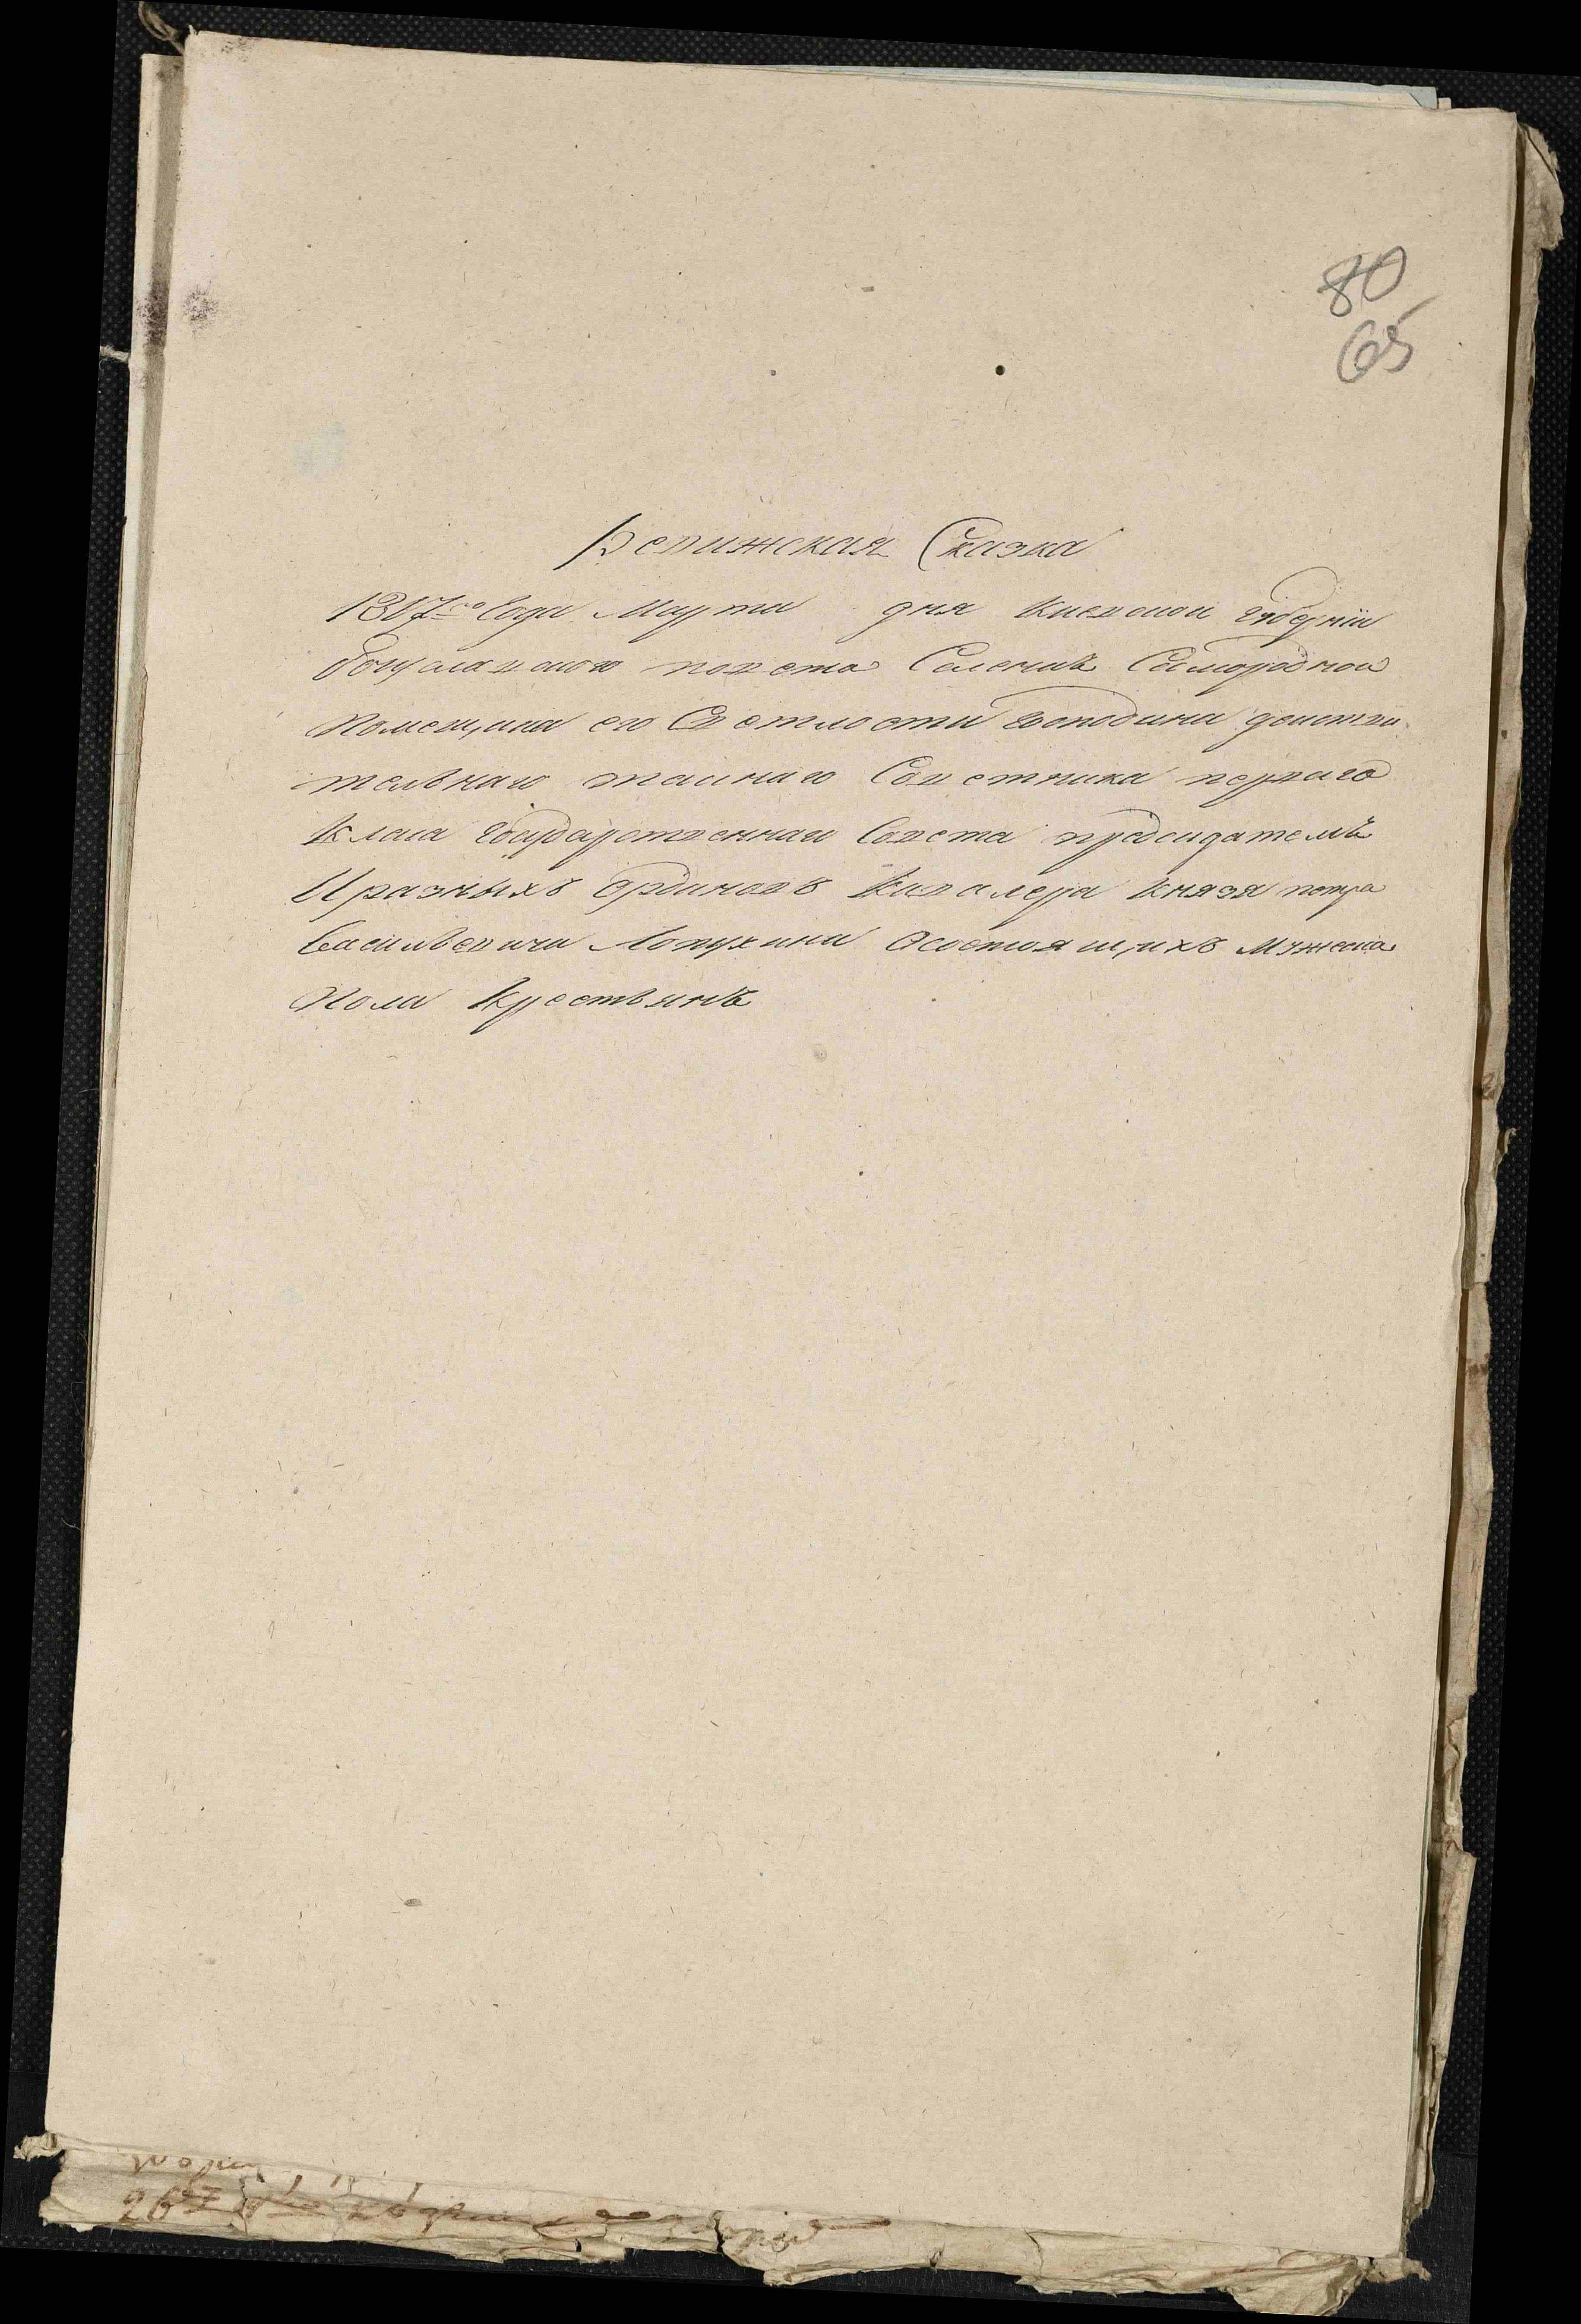 80
65
Ревижская Сказка
1817го Года Марта дня Киевской Губернїи
Богуславского повета Селенїя Самородной
Помещика его Светлости Господина действи
тельнаго тайнаго Советника перваго
Класа Государственнаго Совета председателя
И разныхъ Орденовъ Кавалера Князя петра
Васильевича Лопухина Осостоящихъ Мужеска
Пола Крестьянъ